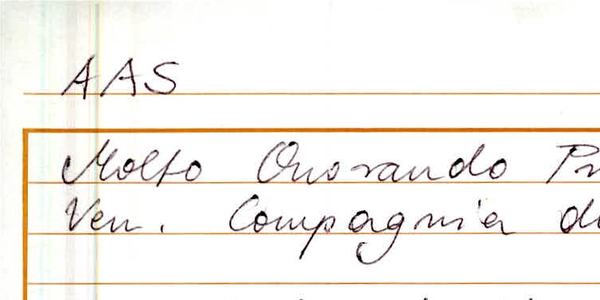 AAS
Molto Onorando Pr
Ven. Compagnia di